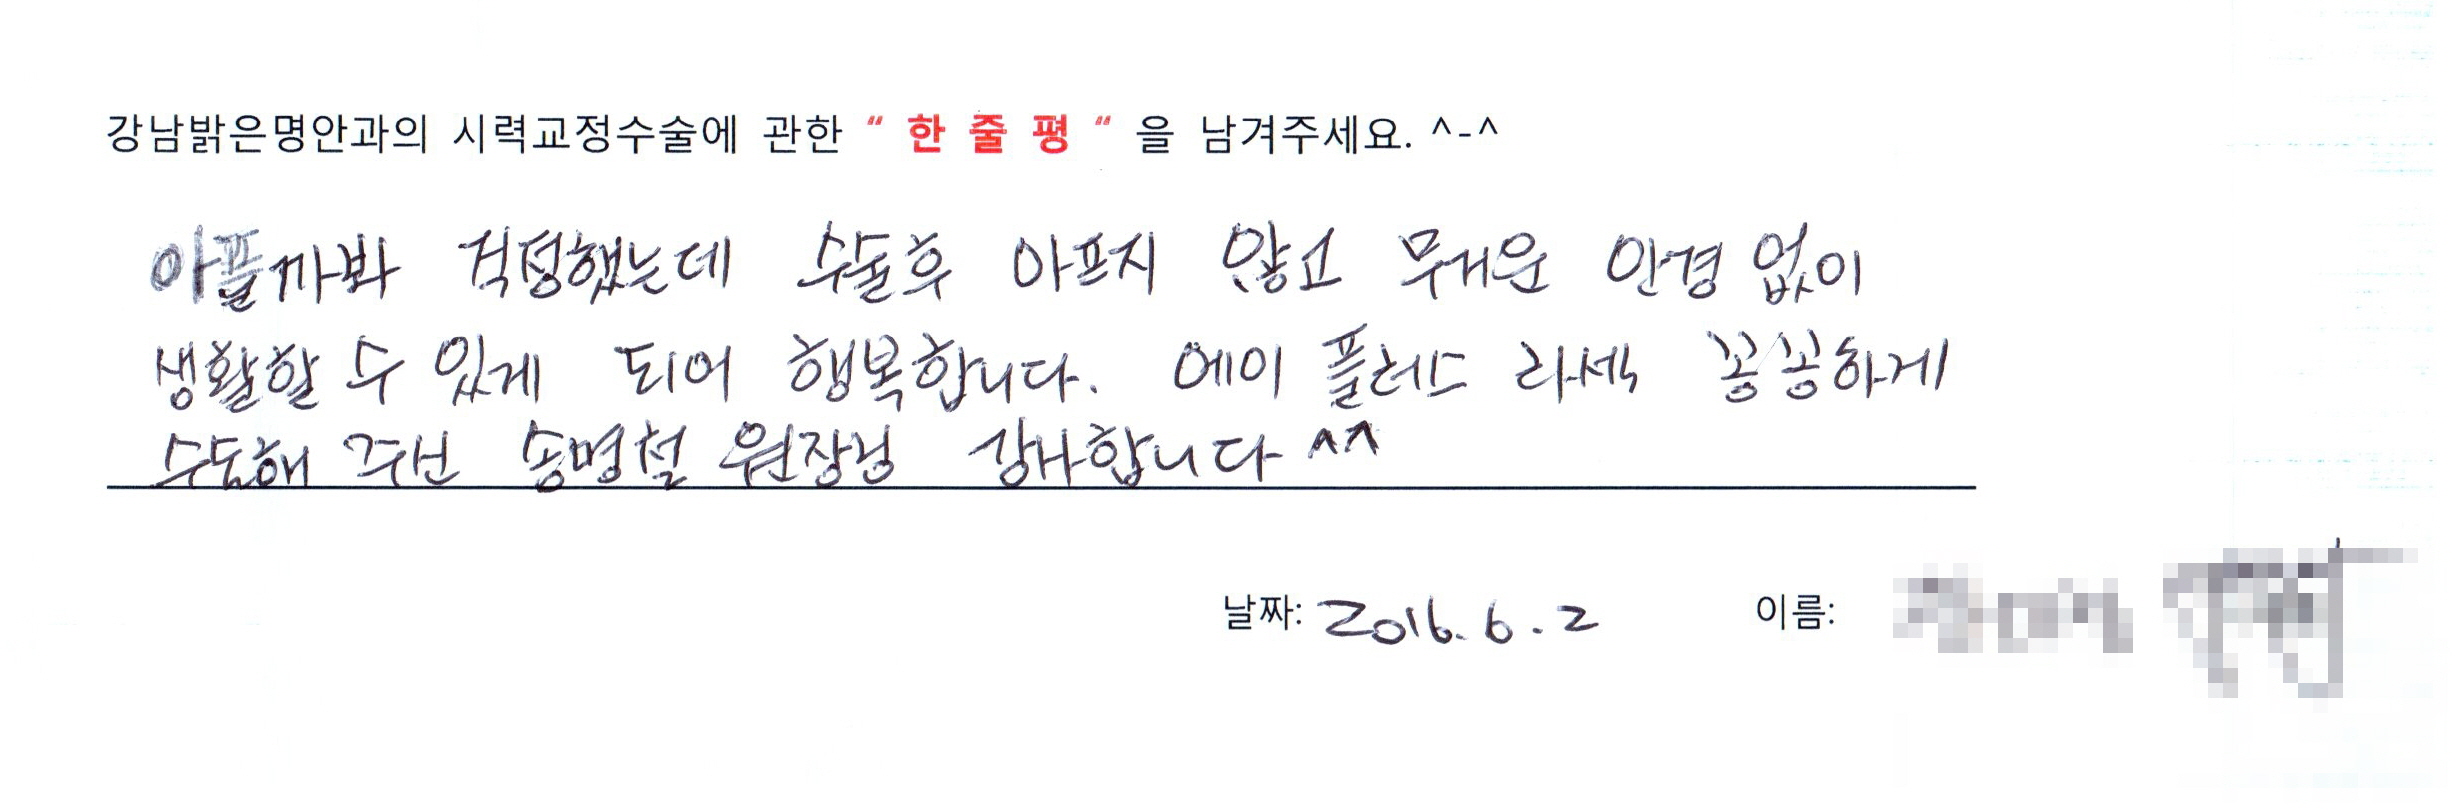 강남밝은명안과의 시력교정수술에 관한 “ 한 줄 평 “ 을 남겨주세요. ^-^
아플까봐 걱정했는데 수술후 아프지 않고 무거운 안경 없이
생활할 수 있게 되어 행복합니다. 에이 플러스 라섹 꽁꽁하게
수술해 주신 송명철 원장님 감사합니다 ^^
날짜: 2016. 6. 2 이름: